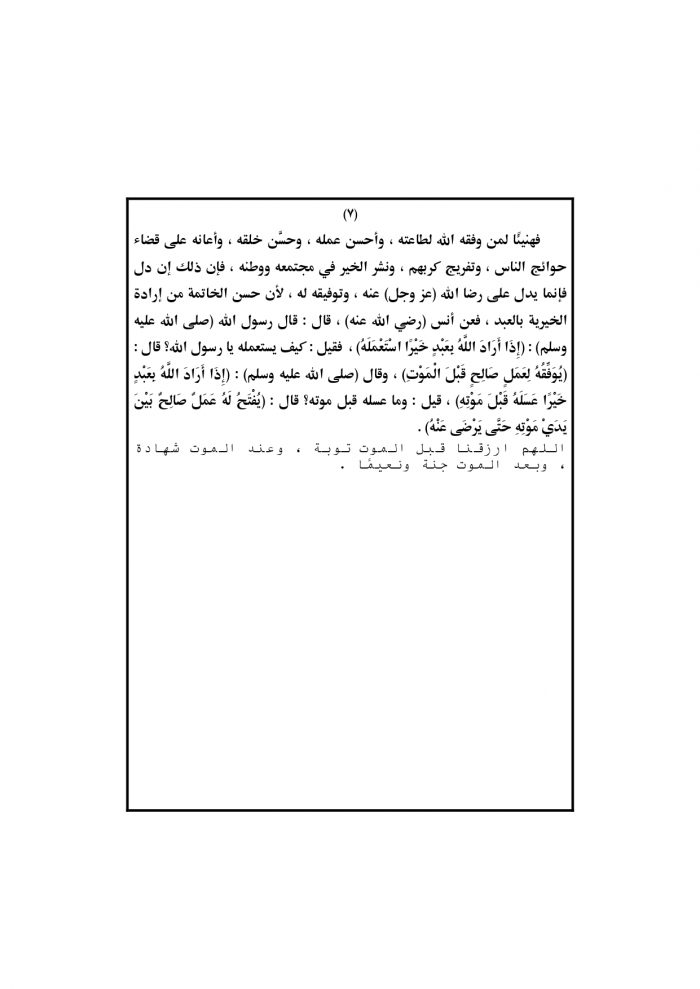 (٧)
فهنيئًا لمن وفقه الله لطاعته ، وأحسن عمله ، وحسَّن خلقه ، وأعانه على قضاء
حوائج الناس ، وتفريج كربهم ، ونشر الخير في مجتمعه ووطنه ، فإن ذلك إن دل
فإنما يدل على رضا الله (عز وجل) عنه ، وتوفيقه له ، لأن حسن الخاتمة من إرادة
الخيرية بالعبد ، فعن أنس (رضي الله عنه) ، قال : قال رسول الله (صلى الله عليه
وسلم) : (إِذَا أَرَادَ اللَّهُ بِعَبْدٍ خَيْرًا اسْتَعْمَلَهُ) ، فقيل : كيف يستعمله يا رسول الله؟ قال :
(يُوَفِّقُهُ لِعَمَلٍ صَالِحٍ قَبْلَ الْمَوْتِ) ، وقال (صلى الله عليه وسلم) : (إِذَا أَرَادَ اللَّهُ بِعَبْدٍ
خَيْرًا عَسَلَهُ قَبْلَ مَوْتِهِ) ، قيل : وما عسله قبل موته؟ قال : (يُفْتَحُ لَهُ عَمَلٌ صَالِحٌ بَيْنَ
يَدَيْ مَوْتِهِ حَتَّى يَرْضَى عَنْهُ) .
اللهم ارزقنا قبل الموت توبة ، وعند الموت شهادة
، وبعد الموت جنة ونعيمًا .